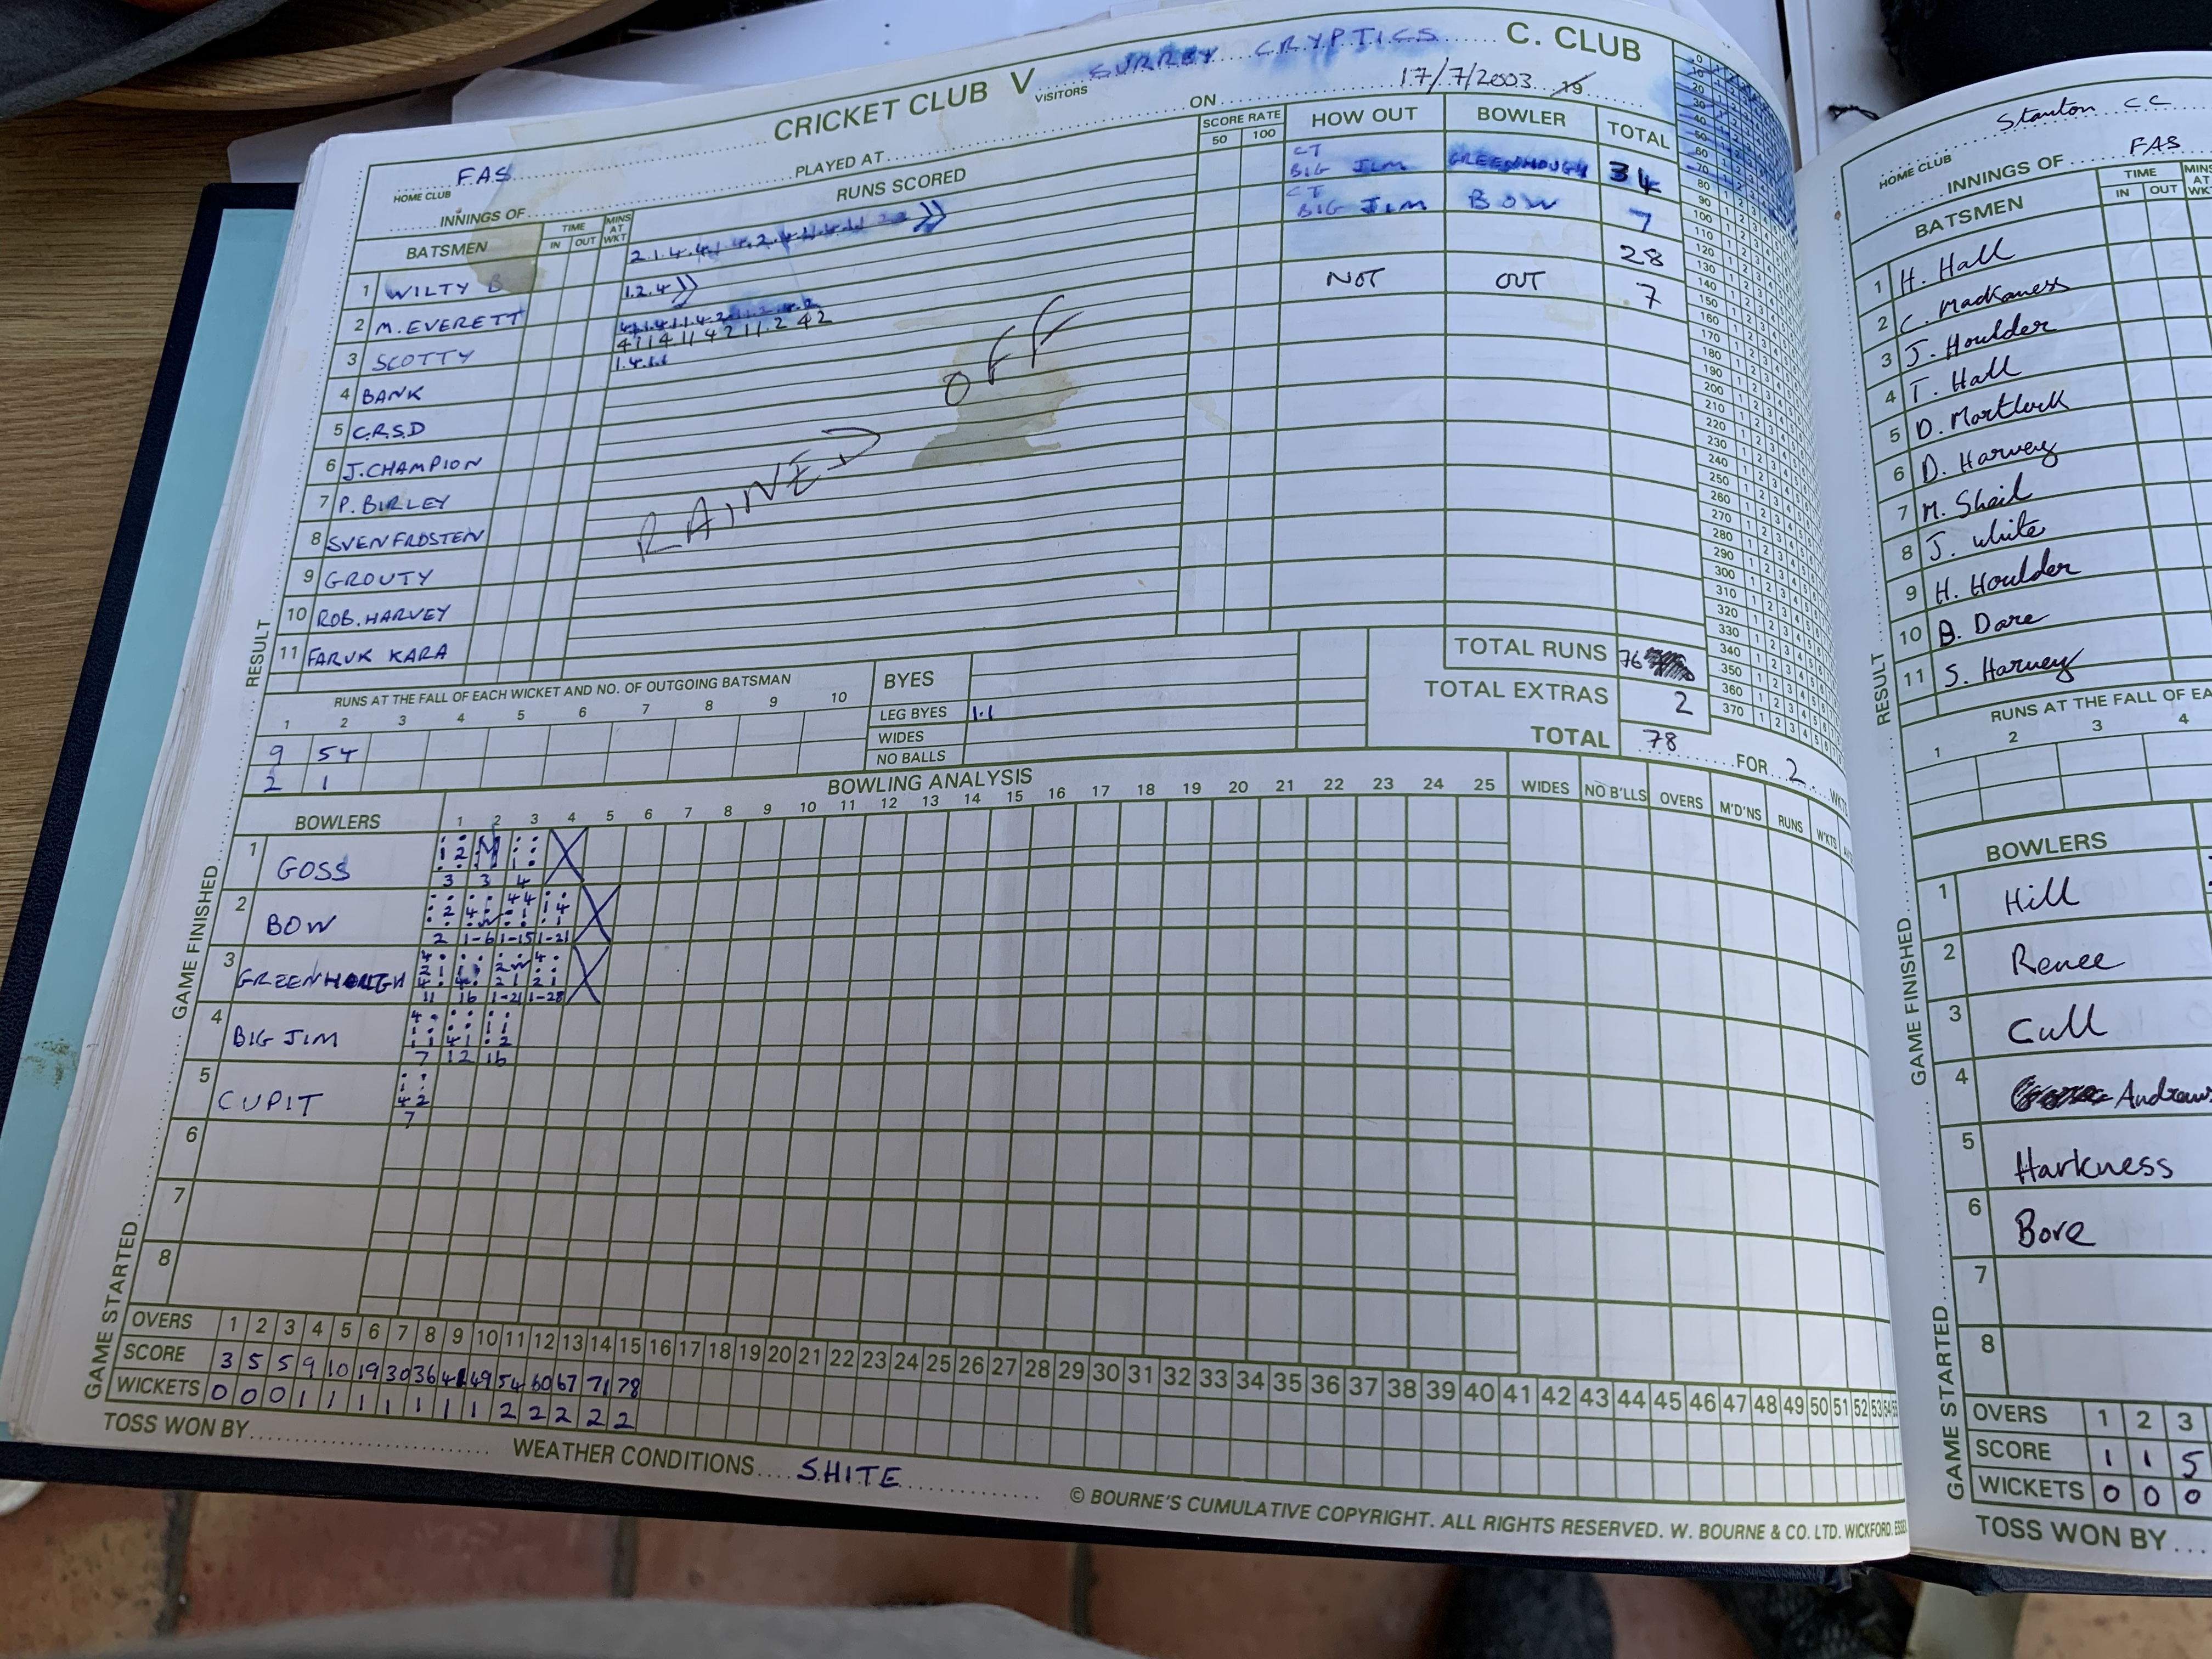 CRICKET CLUB V SURREY CRYPTICS C. CLUB
VISITORS
HOME CLUB FAS PLAYED AT ON 17/7/2003 19
INNINGS OF
BATSMEN TIME IN OUT MINS AT WKT RUNS SCORED SCORE RATE 50 100 HOW OUT BOWLER TOTAL
1 WILTY B CT BIG JIM GREENHOUGH 34
2 M. EVERETT 1.2.4 CT BIG JIM BOW 7
3 SCOTTY 4 1 1 4 1 1 4 2 1 1 . 2 4 2 28
4 BANK 1.4.1.1 NOT OUT 7
5 C.R.S.D
6 J. CHAMPION
7 P. BIRLEY
8 SVEN FROSTEN
9 GROUTY
10 ROB. HARVEY
11 FARUK KARA
RAINED OFF
RESULT
RUNS AT THE FALL OF EACH WICKET AND NO. OF OUTGOING BATSMAN
1 2 3 4 5 6 7 8 9 10
9 54
2 1
BYES
LEG BYES 1.1
WIDES
NO BALLS
TOTAL RUNS 76
TOTAL EXTRAS 2
TOTAL 78 FOR 2 WKTS
BOWLING ANALYSIS
BOWLERS 1 2 3 4 5 6 7 8 9 10 11 12 13 14 15 16 17 18 19 20 21 22 23 24 25 WIDES NO B'LLS OVERS M'D'NS RUNS W'KTS
1 GOSS 3 3 4
2 BOW 2 1-6 1-15 1-21
3 GREENHOUGH 11 16 1-21 1-28
4 BIG JIM 7 12 16
5 CUPIT 7
6
7
8
GAME FINISHED
GAME STARTED
OVERS 1 2 3 4 5 6 7 8 9 10 11 12 13 14 15 16 17 18 19 20 21 22 23 24 25 26 27 28 29 30 31 32 33 34 35 36 37 38 39 40 41 42 43 44 45 46 47 48 49 50 51 52 53 54 55
SCORE 3 5 5 9 10 19 30 36 41 49 54 60 67 71 78
WICKETS 0 0 0 1 1 1 1 1 1 1 2 2 2 2 2
TOSS WON BY
WEATHER CONDITIONS SHITE
© BOURNE'S CUMULATIVE COPYRIGHT. ALL RIGHTS RESERVED. W. BOURNE & CO. LTD. WICKFORD. ESSEX
Stanton CC
HOME CLUB
INNINGS OF FAS
BATSMEN TIME IN OUT MINS AT WKT
1 H. Hall
2 C. Mackaness
3 J. Houlder
4 T. Hall
5 D. Mortlock
6 D. Harvey
7 M. Sheil
8 J. White
9 H. Houlder
10 B. Dare
11 S. Harvey
RESULT
RUNS AT THE FALL OF EA
1 2 3 4
BOWLERS
1 Hill
2 Renee
3 Cull
4 Andrews
5 Harkness
6 Bore
7
8
GAME FINISHED
GAME STARTED
OVERS 1 2 3
SCORE 1 1 5
WICKETS 0 0 0
TOSS WON BY